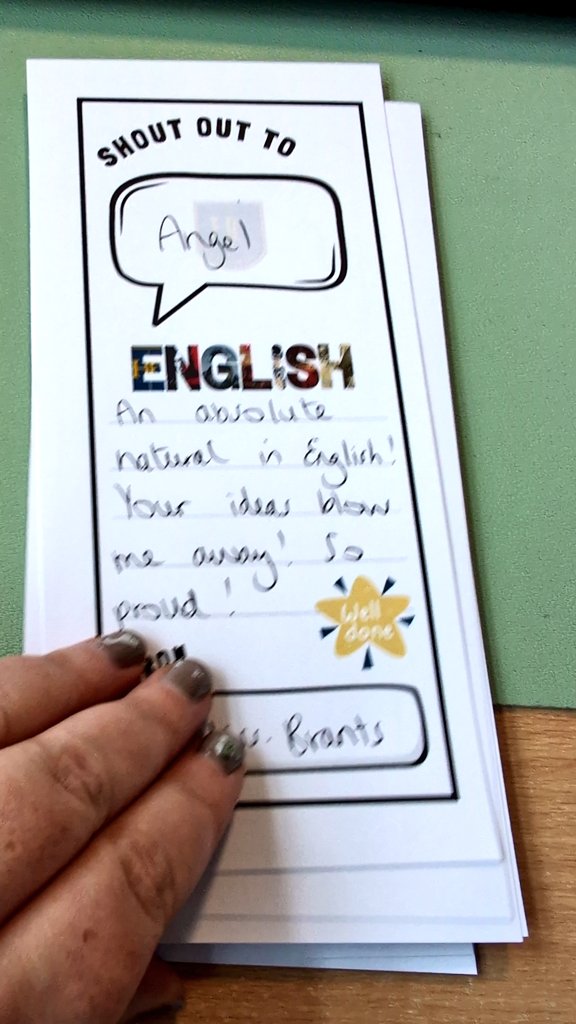 SHOUT OUT TO
Angel
ENGLISH
An absolute
natural in English!
Your ideas blow
me away! So
proud!
Well
done
Brants